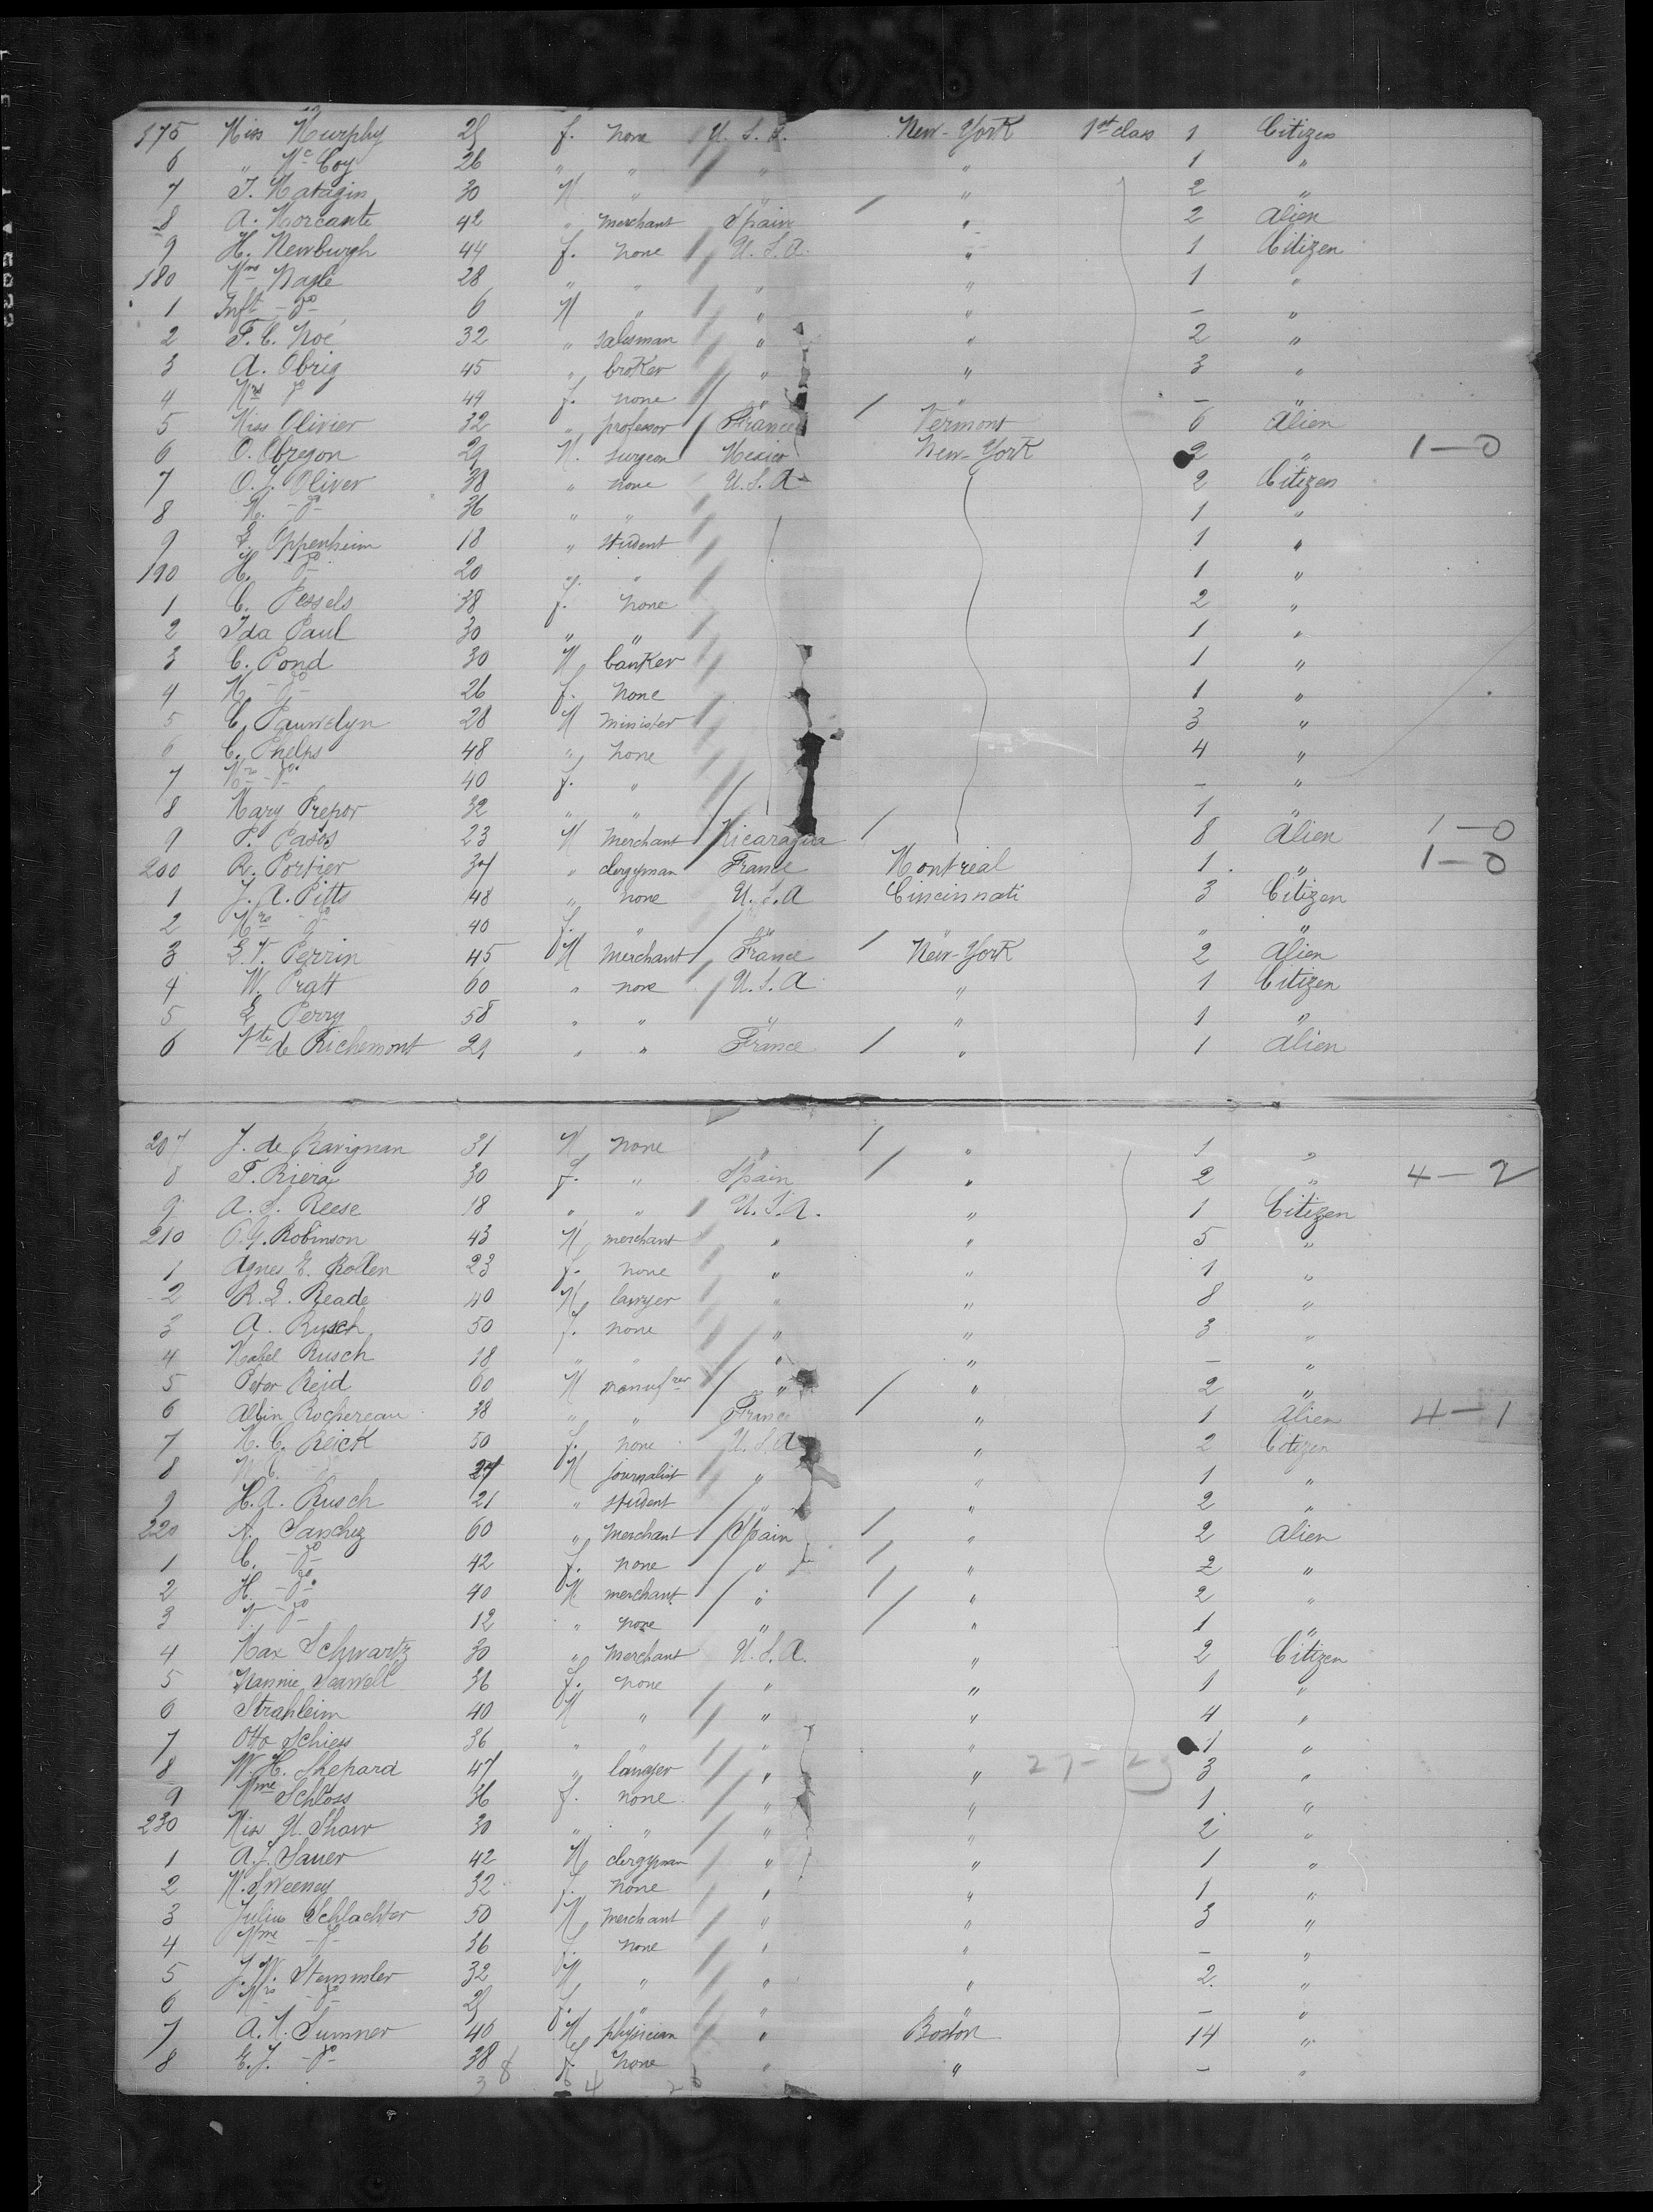 175 Miss Murphy 25 f. none U.S.A. New-York 1st class 1 Citizen
6 " McCoy 26 " " " " 1 "
7 T. Matagin 30 M " " " 2 "
8 A. Morcante 42 " merchant Spain " 2 Alien
9 H. Newburgh 44 f. none U.S.A. " 1 Citizen
180 Mrs Nagle 28 " " " " 1 "
1 Inft - do - 6 M " " " - "
2 F. C. Noé 32 " salesman " " 2 "
3 A. Obrig 45 " broker " " 3 "
4 Mrs do 44 f. none " " - "
5 Miss Olivier 32 " professor France Vermont 6 Alien
6 O. Obregon 29 M. surgeon Mexico New-York 2 " 1-0
7 O. J. Oliver 38 " none U.S.A 2 Citizen
8 M. - do - 36 " " 1 "
9 E. Oppenheim 18 " student 1 "
190 H. do 20 " " 1 "
1 C. Pessels 38 f. none 2 "
2 Ida Paul 30 " " 1 "
3 C. Pond 30 M banker 1 "
4 M - do - 26 f. none 1 "
5 C. Pauwelyn 28 M minister 3 "
6 C. Phelps 48 " none 4 "
7 Mrs - do - 40 f. " - "
8 Mary Prepor 32 " " 1 "
9 P. Pasos 23 M Merchant Nicaragua 8 Alien 1-0
200 R. Portier 37 " clergyman France Montreal 1 " 1-0
1 J. A. Pitts 48 " none U.S.A Cincinnati 3 Citizen
2 Mrs - do 40 f. " " " " "
3 E. V. Perrin 45 M Merchant France New-York 2 Alien
4 W. Pratt 60 " none U.S.A " 1 Citizen
5 E. Perry 58 " " " " 1 "
6 Vte de Richemont 29 " " France " 1 Alien
207 J. de Ravignan 31 M none " " 1 "
8 F. Riera 30 f. " Spain " 2 " 4-2
9 A. S. Reese 18 " " U.S.A. " 1 Citizen
210 O. G. Robinson 43 M merchant " " 5 "
1 Agnes E. Rollen 23 f. none " " 1 "
2 R. E. Reade 40 M lawyer " " 8 "
3 A. Rusch 50 f. none " " 3 "
4 Mabel Rusch 18 " " " " - "
5 Peter Reid 60 M manufrer " " 2 "
6 Albin Rochereau 38 " " France " 1 Alien 4-1
7 M. C. Reick 50 f. none U.S.A " 2 Citizen
8 27 M journalist " " 1 "
9 H. A. Rusch 21 " student " " 2 "
220 A. Sanchez 60 " Merchant Spain " 2 Alien
1 C. - do - 42 f. none " " 2 "
2 H - do - 40 M merchant " " 2 "
3 V. - do - 12 " none " " 1 "
4 Max Schwartz 30 " Merchant U.S.A. " 2 Citizen
5 Nannie Sawell 36 f. none " " 1 "
6 Strahleim 40 M " " " 4 "
7 Otto Schiess 36 " " " " 1 "
8 W. H. Shepard 47 " lawyer " " 27-23 3 "
9 Mme Schloss 36 f. none " " 1 "
230 Miss U. Shaw 30 " " " " 2 "
1 A. J. Sauer 42 M clergyman " " 1 "
2 M. Sweeney 32 f. none " " 1 "
3 Julius Schlachter 50 M Merchant " " 3 "
4 Mme - do - 36 f. none " " - "
5 J. W. Stemmler 32 M " " " 2 "
6 Mrs - do - 25 f. " " " - "
7 A. M. Sumner 40 M physician " Boston 14 "
8 E. J. - do - 38 f. none " " - "